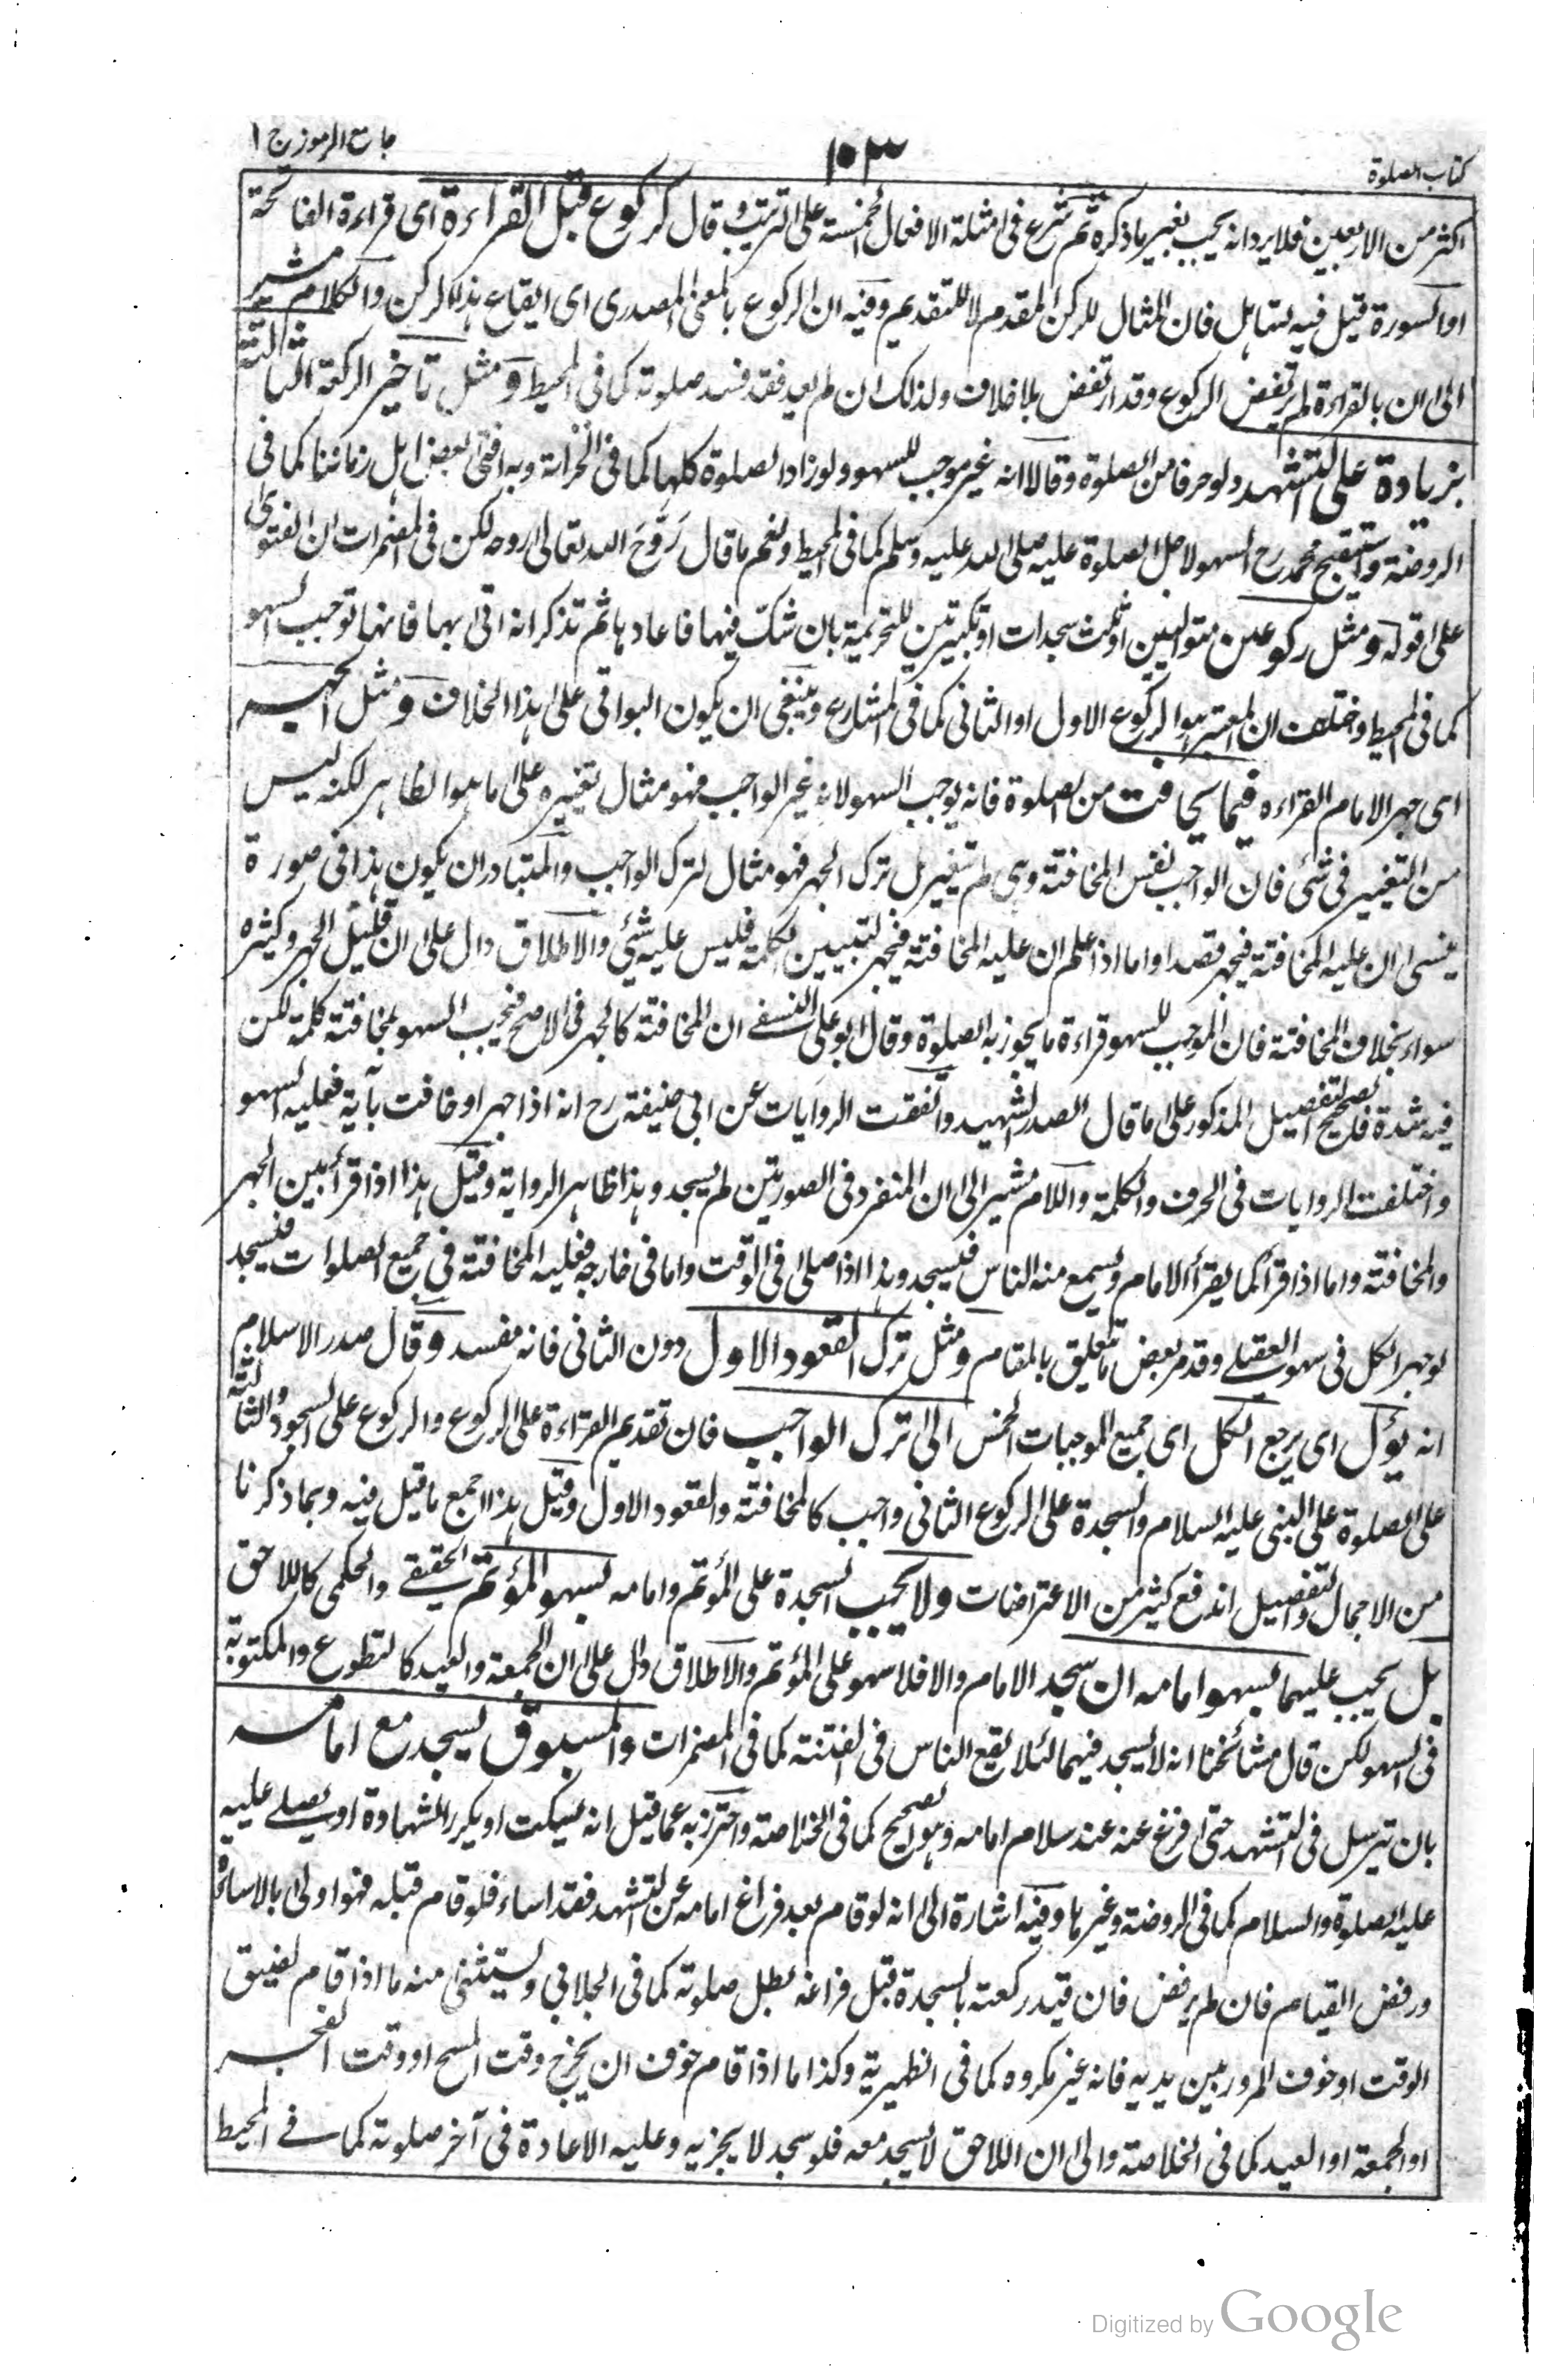 كتاب الصلوة
١٠٣
جامع الرموز ج ١
اكثر من الاربعين فلا يرد انه يجب بغير ما ذكره ثم شرع فى امثلة الافعال الخمسة على الترتيب وقال كركوع قبل القراءة اى قراءة الفاتحة
او السورة قيل فيه تساهل فان المثال للركن المقدم لا للتقديم وفيه ان الركوع بالمعنى المصدرى اى ايقاع هذا الركن والكلام مشير
الى ان بالقراءة لم يرتفض الركوع وقد ارتفض بلا خلاف ولذلك ان لم يعد فقد فسد صلوته كما فى المحيط ومثل تاخير الركعة الثالثة
بزيادة على التشهد ولو حرفا من الصلوة وقالا انه غير موجب للسهو ولو زاد الصلوة كلها كما فى الخزانة وبه افتى بعض اهل زماننا كما فى
الروضة واستقبح محمد رح السهو لاجل الصلوة عليه صلى الله عليه وسلم كما فى المحيط ونعم ما قال رَوَّحَ الله تعالى روحه لكن فى المضمرات ان الفتوى
على قوله ومثل ركوعين متواليين او ثلث سجدات او تكبيرتين للتحريمة بان شك فيها فاعادها ثم تذكر انه اتى بها فانها توجب السهو
كما فى المحيط واختلف ان المعتبر هو الركوع الاول او الثانى كما فى المشارع وينبغى ان يكون البواقى على هذا الخلاف ومثل الجهر
اى جهر الامام القراءه فيما يخافت من الصلوة فانه يوجب السهو لانه غير الواجب فهو مثال تغييره على ما هو الظاهر لكنه ليس
من التغيير فى شئ فان الواجب نفس المخافتة وهى لم تتغير بل ترك الجهر فهو مثال لترك الواجب والمتبادر ان يكون هذا فى صورة
ينسى ان عليه المخافتة فيجهر قصدا واما اذا علم ان عليه المخافتة فيجهر لتبيين الكلمة فليس عليه شئ والاطلاق دال على ان قليل الجهر وكثيره
سواء بخلاف المخافتة فان الموجب للسهو قراءة ما يجوز به الصلوة وقال ابو على النسفے ان المخافتة كالجهر فى الاصح فيجب السهو بمخافتة كلمة لكن
فيه شدة فالصحيح التفصيل المذكور على ما قال الصدر الشهيد واتفقت الروايات عن ابى حنيفة رح انه اذا جهر او خافت بآية فعليه السهو
واختلفت الروايات فى الحرف والكلمة واللام مشير الى ان المنفرد فى الصورتين لم يسجد وهذا ظاهر الرواية وقيل هذا اذا قرأ بين الجهر
والمخافتة واما اذا قرأ كما يقرأ الامام ويسمع منه الناس فيسجد وهذا اذا صلى فى الوقت واما فى خارجه فعليه المخافتة فى جميع الصلوات فيسجد
لو جهر الكل فى سهو العقيلے وقد مر بعض ما يتعلق بالمقام ومثل ترك القعود الاول دون الثانى فانه مفسد وقال صدر الاسلام
انه يؤل اى يرجع الكل اى جميع الموجبات الخمس الى ترك الواجب فان تقديم القراءة على الركوع والركوع على السجود والثالثة
على الصلوة على النبى عليه السلام والسجدة على الركوع الثانى واجب كالمخافتة والقعود الاول وقيل هذا اجمع ما قيل فيه وبما ذكرنا
من الاجمال والتفصيل اندفع كثير من الاعتراضات ولا يجب السجدة على المؤتم وامامه بسهو المؤتم الحقيقے والحكمى كاللاحق
بل يجب عليهما بسهو امامه ان سجد الامام والا فلا سهو على المؤتم والاطلاق دال على ان الجمعة والعيد كالتطوع والمكتوبة
فى السهو لكن قال مشائخنا انه لا يسجد فيهما لئلا يقع الناس فى الفتنة كما فى المضمرات والمسبوق يسجد مع امامه
بان ترسل فى التشهد حتى فرغ عنه عند سلام امامه وهو الصحيح كما فى الخلاصة واحترز به عما قيل انه يسكت او يكرر الشهادة او يصلے عليه
عليه الصلوة والسلام كما فى الروضة وغيرها وفيه اشارة الى انه لو قام بعد فراغ امامه عن التشهد فقد اساء فلو قام قبله فهو اولى بالاساءة
ورفض القيام فان لم يرفض فان قيد ركعته بالسجدة قبل فراغه بطل صلوته كما فى الجلابي ويستثنى منه ما اذا قام لضيق
الوقت او خوف المرور بين يديه فانه غير مكروه كما فى الظهيرية وكذا ما اذا قام خوف ان يخرج وقت المسح او وقت الفجر
او الجمعة او العيد كما فى الخلاصة والى ان اللاحق لا يسجد معه فلو سجد لا يجزيه وعليه الاعادة فى آخر صلوته كما فے المحيط
Digitized by Google